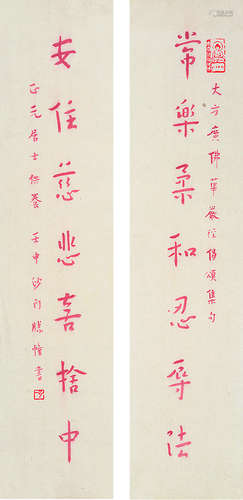 大方廣佛華嚴經偈頌集句
常樂柔和忍辱法
安住慈悲喜捨中
正元居士供養 壬申沙門勝髻書